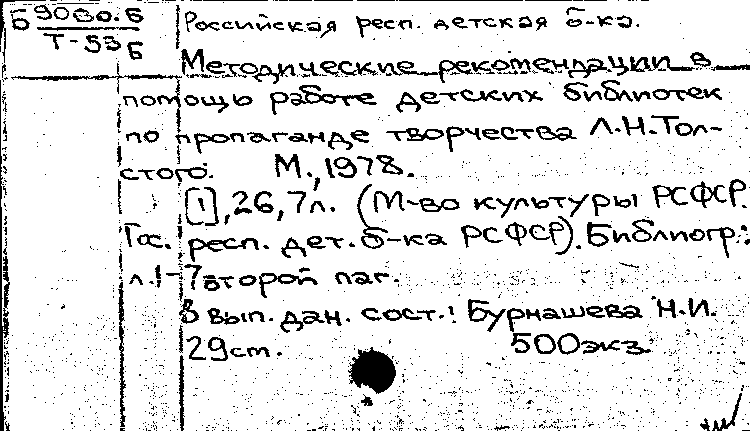 Б 9030.6 Российская респ. детская б-ка.
Т-53 Б
Методические рекомендации в
помощь работе детских библиотек
по пропаганде творчества Л.Н.Тол-
стого. М., 1978.
[1], 26, 7л. (М-во культуры РСФСР.
Гос. респ. дет. б-ка РСФСР). Библиогр.:
л.1-7 второй паг.
В вып. дан. сост.: Бурнашева Н.И.
29см. 500экз.